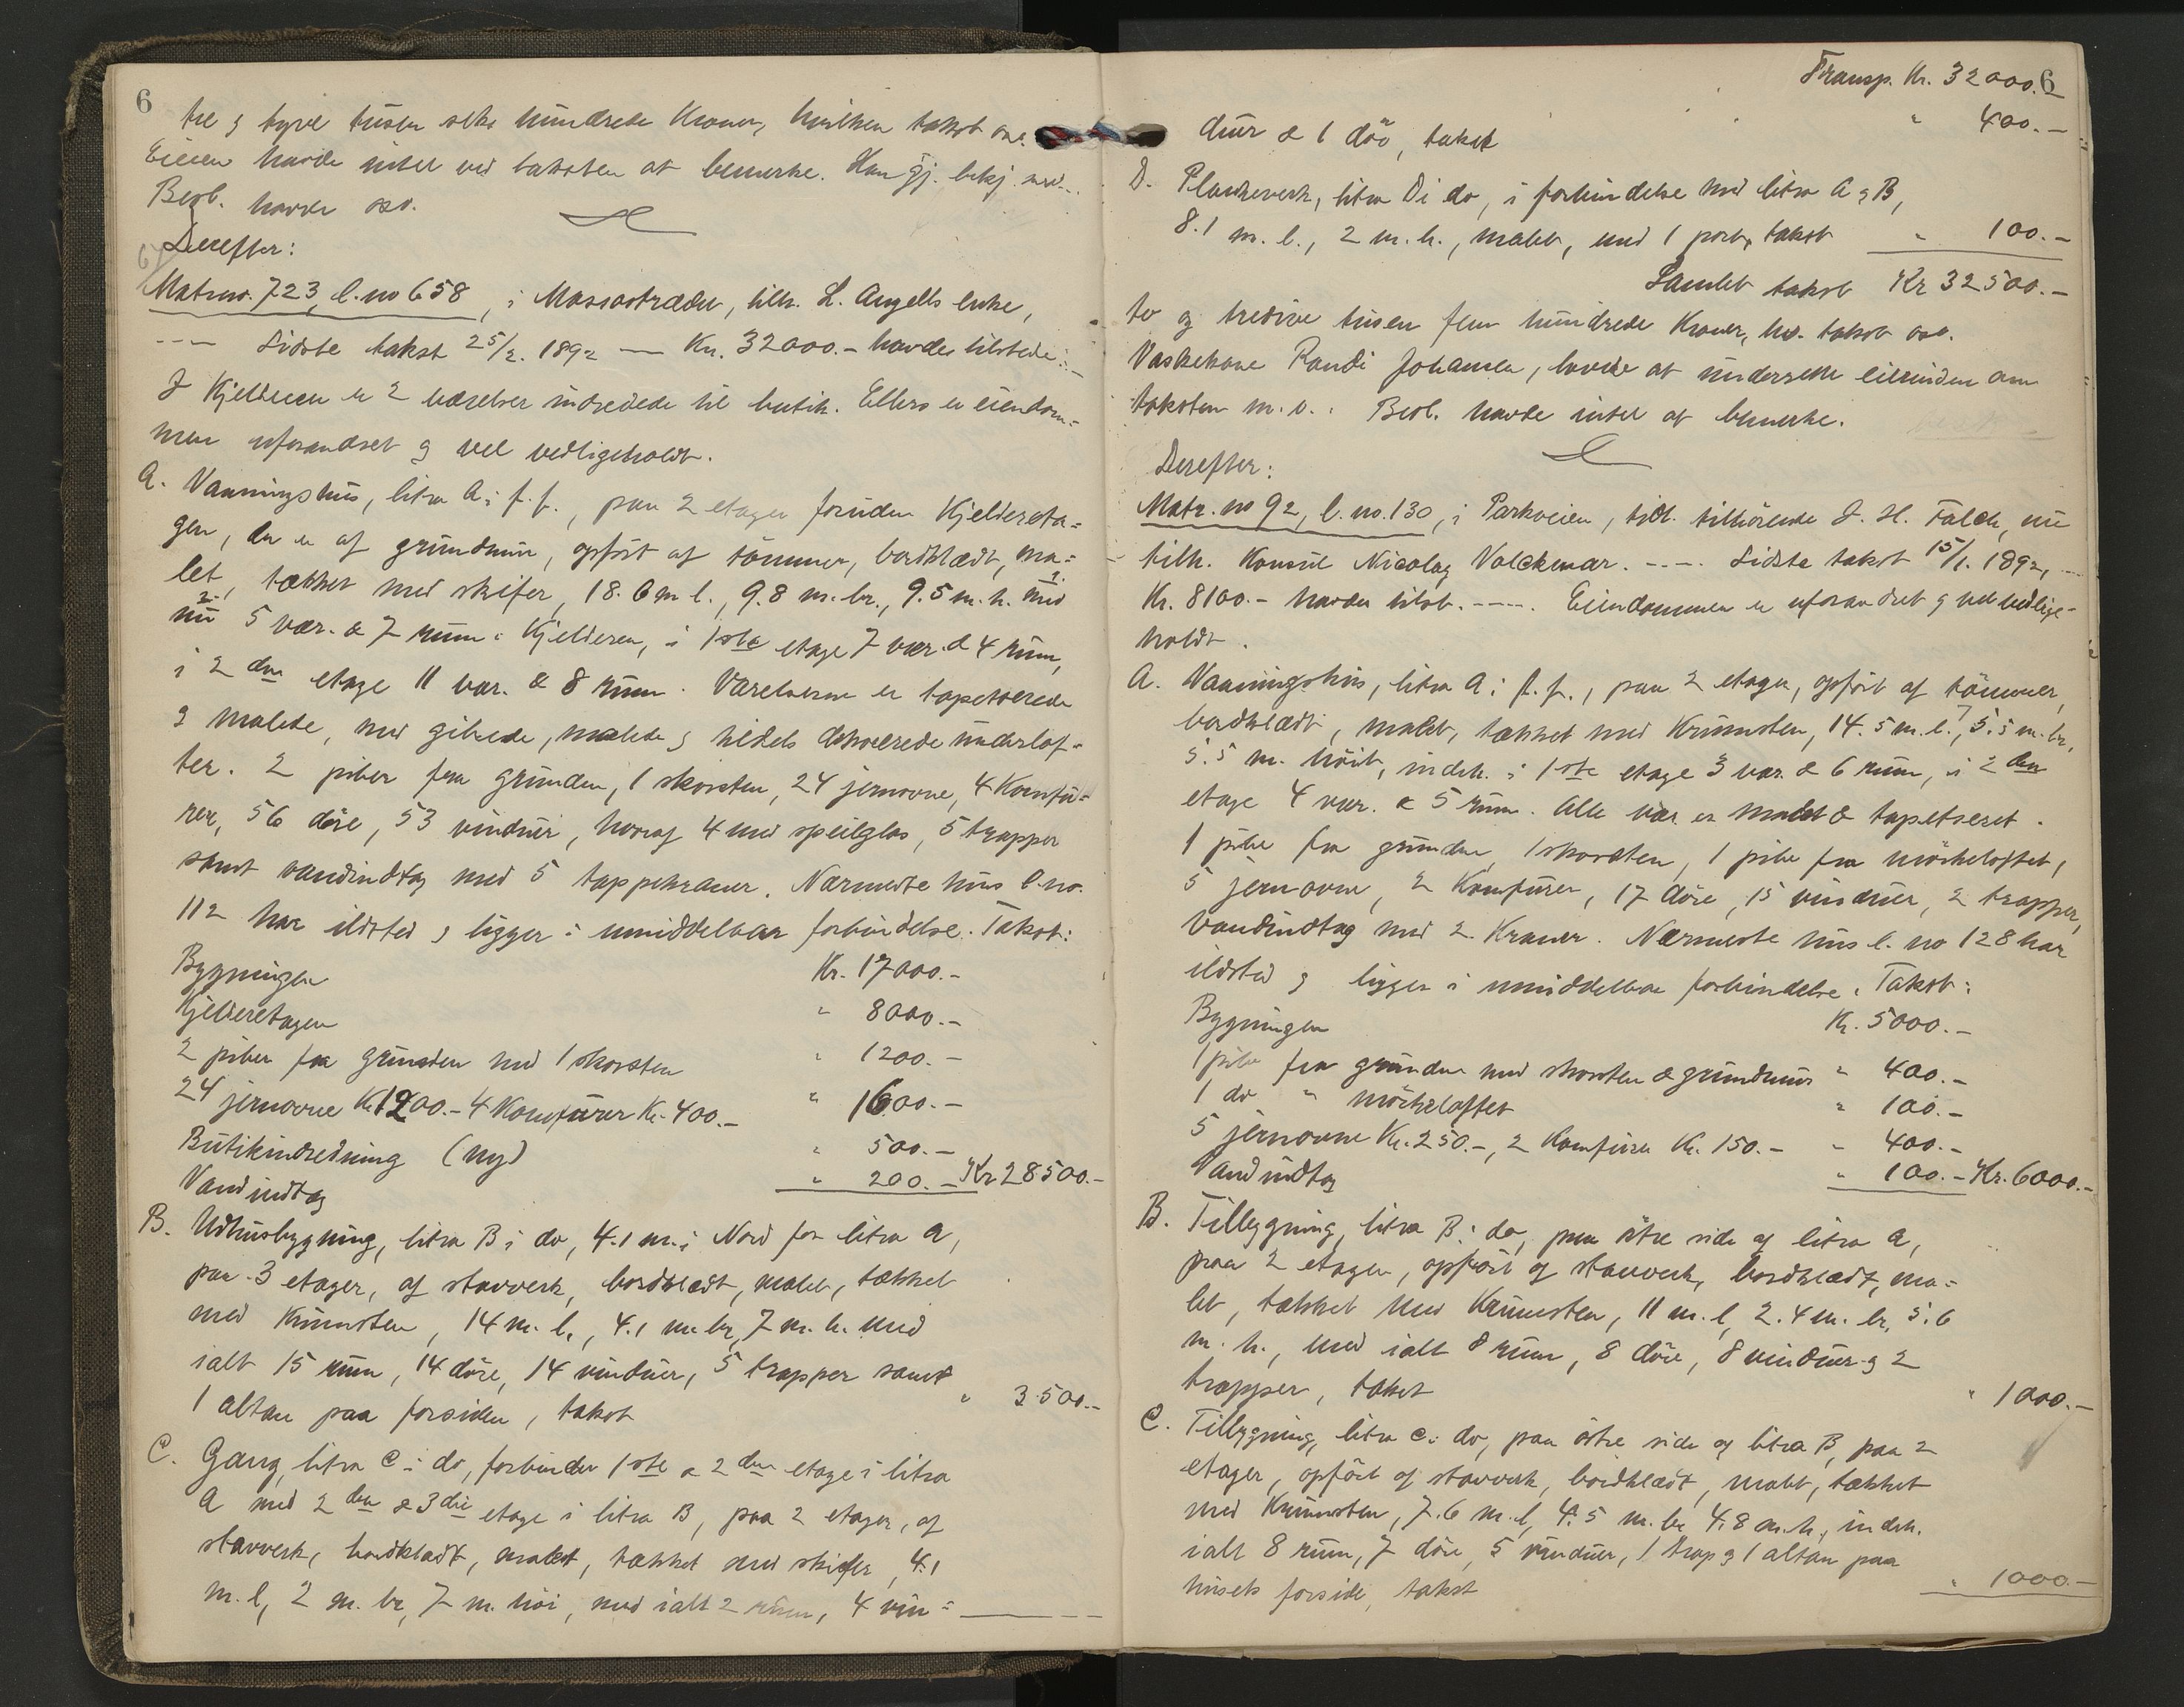 6
tre og tyve tusen seks hundrede Kroner, hvilken takst osv.
Eieren havde intet ved taksten at bemerke. Han gj. bekj. med...
Besb. havde osv.
Derefter:
Matr.no. 723, l.no 658, i Massastrædet, tilh. L. Angells enke,
--- Sidste takst 25/2. 1892 — Kr. 32000.- havdes tilstede.
I Kjelderen er 2 værelser indredede til butik. Ellers er eiendom=
men uforandret og vel vedligeholdt.
A. Vaaningshus, litra A i f.f., paa 2 etager foruden Kjeldereta=
gen, der er af grundmur, opført af tømmer, bordklædt, ma=
let, tækket med skifer, 18.6 m l., 9.8 m. br., 9.5 m. h. med
nu 5 vær. & 7 rum i Kjelderen, i 1ste etage 7 vær. & 4 rum,
i 2den etage 11 vær. & 8 rum. Værelserne er tapetserede
og malede, med gibsede, malede og tildels dekorerede underlof=
ter. 2 piber fra grunden, 1 skorsten, 24 jernovne, 4 Komfu=
rer, 56 døre, 53 vinduer, hvoraf 4 med speilglas, 5 trapper
samt vandindtag med 5 tappekraner. Nærmeste hus l.no.
112 har ildsted og ligger i umiddelbar forbindelse. Takst:
Bygningen Kr. 17000.-
Kjelderetagen " 8000.-
2 piber fra grunden med 1 skorsten " 1200.-
24 jernovne Kr. 1200.- 4 Komfurer Kr. 400.- " 1600.-
Butikindredning (ny) " 500.-
Vandindtag " 200.- Kr 28500.-
B. Udhusbygning, litra B i do, 4.1 m. i Nord for litra A,
paa 3 etager, af stavverk, bordklædt, malet, tækket
med Krumsten, 14 m. l., 4.1 m. br, 7 m. h. med
ialt 15 rum, 14 døre, 14 vinduer, 5 trapper samt
1 altan paa forsiden, takst " 3500.-
C. Gang, litra C i do, forbinder 1ste & 2den etage i litra
A med 2den & 3die etage i litra B, paa 2 etager, af
stavverk, bordklædt, malet, tækket med skifer, 4.1
m. l, 2 m. br, 7 m. høi, med ialt 2 rum, 4 vin=
Transp. Kr. 32000.-
6
duer & 1 dør, takst " 400.-
D. Plankeverk, litra D i do, i forbindelse med litra A og B,
8.1 m. l., 2 m. h., malet, med 1 port, takst " 100.-
Samlet takst Kr 32500.-
to og tredive tusen fem hundrede Kroner, hv. takst osv.
Vaskekone Randi Johansen, lovede at underrette eierinden om
taksten m. v. Besb. havde intet at bemerke.
Derefter:
Matr. no 92, l. no. 130, i Parkveien, tidl. tilhørende J. H. Falck, nu
tilh. Konsul Nicolay Volckmar. ---. Sidste takst 15/1. 1892,
Kr. 8100.- havdes tilst. ---. Eiendommen er uforandret og vel vedlige-
holdt.
A. Vaaningshus, litra A i f. f., paa 2 etager, opført af tømmer,
bordklædt, malet, tækket med Krumsten, 14.5 m. l., 5.5 m. br,
5.5 m. høit, indeh. i 1ste etage 3 vær. & 6 rum, i 2den
etage 4 vær. & 5 rum. Alle vær. er malet & tapetseret.
1 pibe fra grunden, 1 skorsten, 1 pibe fra mørkeloftet,
5 jernovne, 2 Komfurer, 17 døre, 15 vinduer, 2 trapper,
vandindtag med 2 Kraner. Nærmeste hus l. no 128 har
ildsted og ligger i umiddelbar forbindelse. Takst:
Bygningen Kr. 5000.-
1 pibe fra grunden med skorsten & grundmur " 400.-
1 do " mørkeloftet " 100.-
5 jernovne Kr. 250.-, 2 Komfurer Kr. 150.- " 400.-
Vandindtag " 100.- Kr. 6000.-
B. Tilbygning, litra B i do, paa østre side af litra A,
paa 2 etager, opført af stavverk, bordklædt, ma=
let, tækket med Krumsten, 11 m. l, 2.4 m. br, 5.6
m. h., med ialt 8 rum, 8 døre, 8 vinduer og 2
trapper, takst " 1000.-
C. Tilbygning, litra C i do, paa østre side af litra B, paa 2
etager, opført af stavverk, bordklædt, malet, tækket
med Krumsten, 7.6 m. l, 4.5 m. br, 4.8 m. h., indeh.
ialt 8 rum, 7 døre, 5 vinduer, 1 trap og 1 altan paa
husets forside, takst " 1000.-